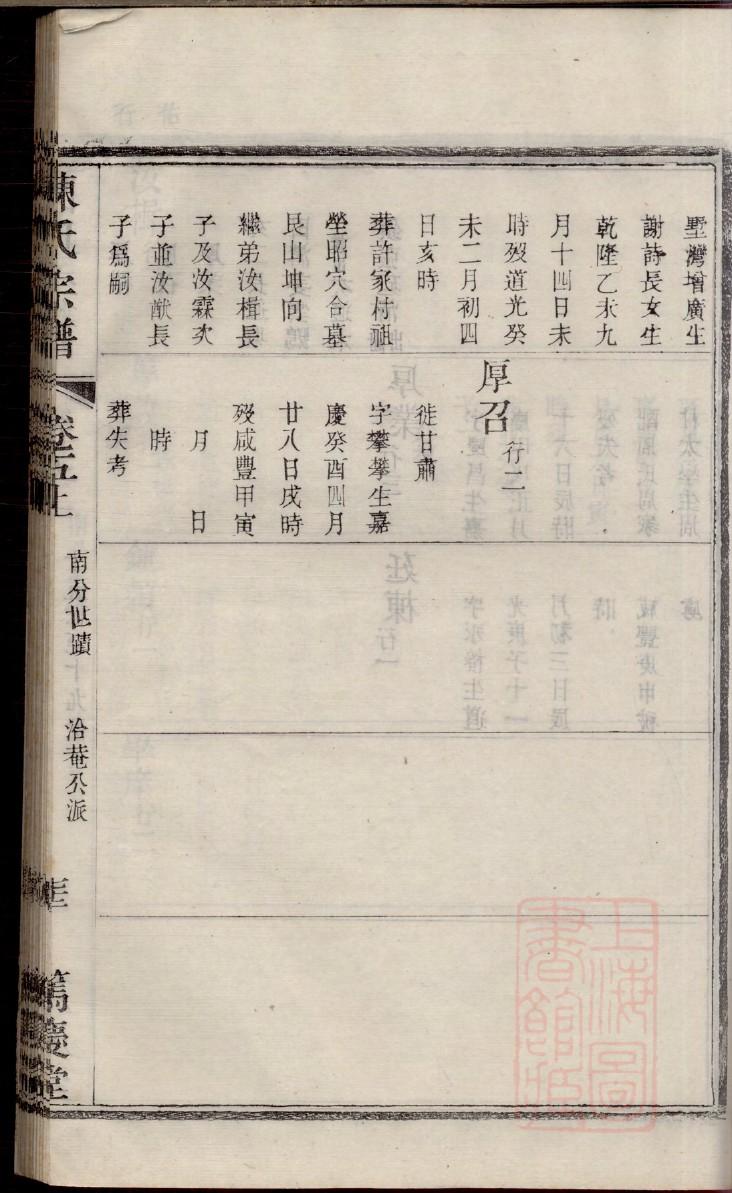 墅灣增廣生
謝詩長女生
乾隆乙未九
月十四日未
時歿道光癸
未二月初四
日亥時
葬許家村祖
塋昭穴合墓
艮山坤向
繼弟汝楫長
子及汝霖次
子並汝猷長
子爲嗣
厚召 行二
徙甘肅
字攀攀生嘉
慶癸酉四月
廿八日戌時
歿咸豐甲寅
月 日
時
葬失考
陳氏宗譜
卷五上
南分世蹟
洽菴公派
篤慶堂
上海圖
書館藏